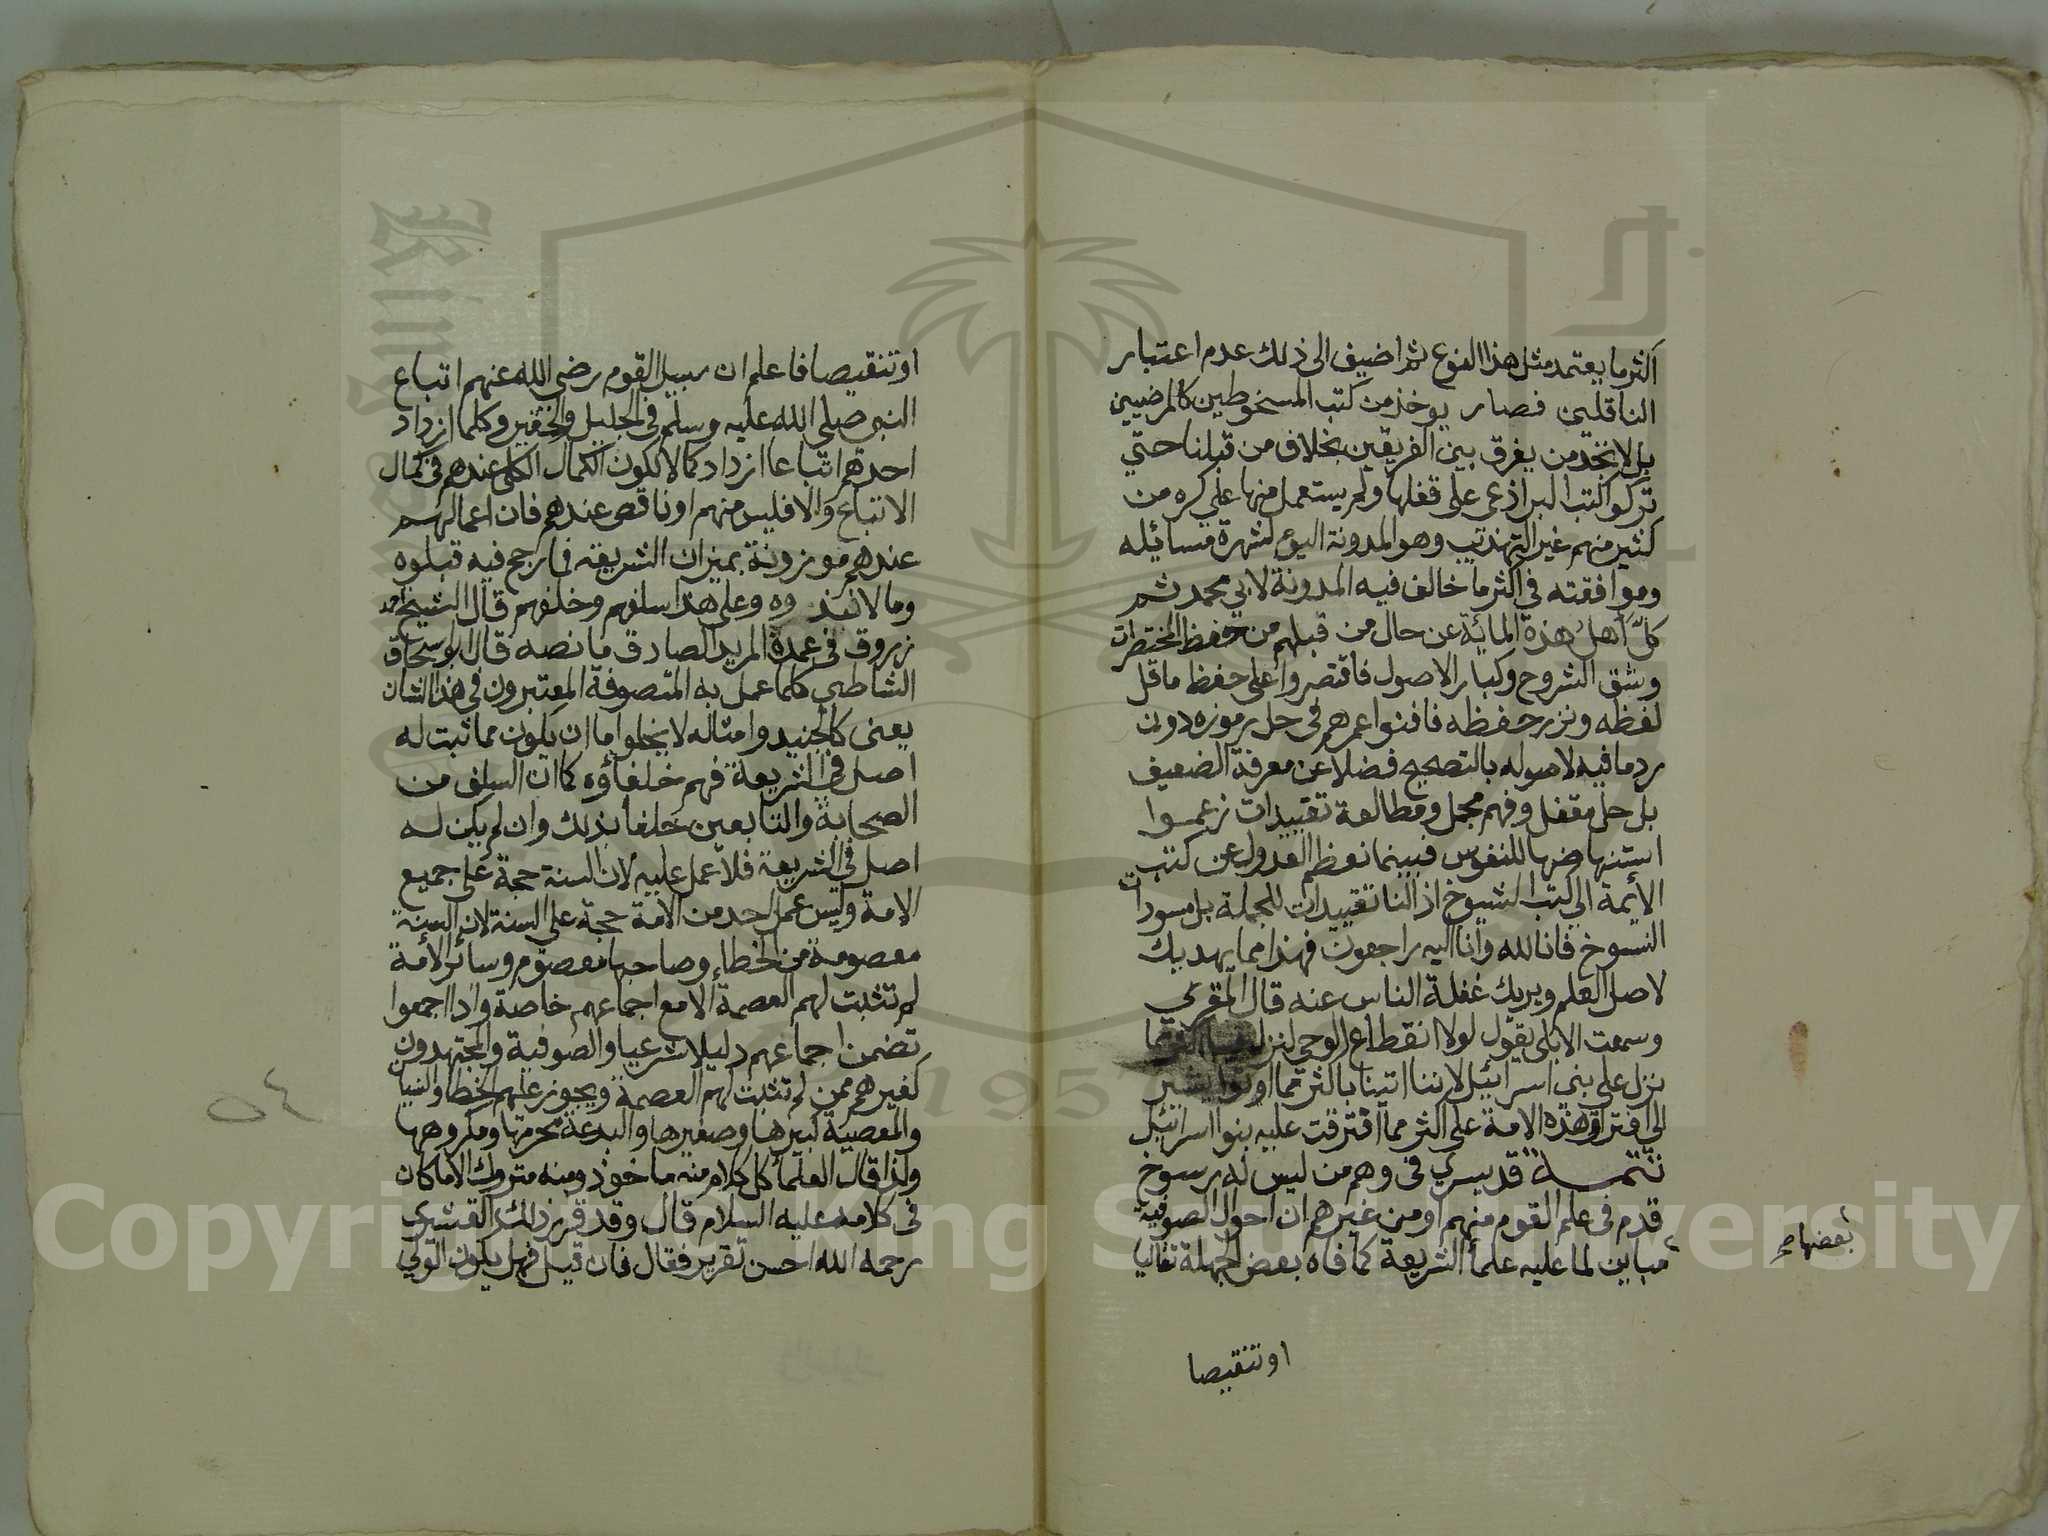 اكثر ما يعتمد مثل هذا النوع ثم اضيف الى ذلك عدم اعتبار
الناقلين فصار يوخذ من كتب المسخوطين كالمرضيين
بل لا تجد من يفرق بين الفريقين بخلاف من قبلنا حتي
تركوا كتب البراذعى على قفلها ولم يستعمل منها علي كره من
كثير منهم غير التهذيب وهو المدونة اليوم لشهرة مسائله
وموافقته في اكثر ما خالف فيه المدونة لابي محمد ثم
كل اهل هذه المائة عن حال من قبلهم من حفظ المختصرات
وشق الشروح وكبار الاصول فاقتصروا على حفظ ما قل
لفظه ونزر حفظه فافنوا عمرهم في حل رموزه دون
رد ما فيه لاصوله بالتصحيح فضلا عن معرفة الضعيف
بل حل مقفل وفهم مجمل ومطالعة تقييدات زعموا
استنهاضها للنفوس فبينما نعظم العدول عن كتب
الائمة الي كتب الشيوخ اذ النا تقييدات للجملة بل مسودات
النسوخ فانا لله وانا اليه راجعون فهذا مما يهديك
لاصل العلم ويريك غفلة الناس عنه قال المقري
وسمعت الابلي يقول لولا انقطاع الوحي لنزل فينا اكثر مما
نزل على بني اسرائيل لاننا اتينا باكثر مما اوتوا يشير
الي افتراق هذه الامة علي اكثر مما افترقت عليه بنوا اسرائيل
تتمة قد يسري في وهم من ليس له رسوخ
قدم في علم القوم منهم او من غيرهم ان احوال الصوفية
مباين لما عليه علمأ الشريعة كما فاه بعض الجهلة تغاليا
بعضها صح
او تنقيصا
او تنقيصا فاعلم ان سبيل القوم رضي الله عنهم اتباع
النبي صلى الله عليه وسلم في الجليل والحقير وكلما ازداد
احدهم اتباعا ازداد كمالا لكون الكمال الكلي عندهم في كمال
الاتباع والا فليس منهم او ناقص عندهم فان اعمالهم
عندهم موزونة بميزان الشريعة فما رجح فيه قبلوه
وما لا نبذوه وعلى هذا سلفهم وخلفهم قال الشيخ احمد
زروق في عمدة المريد الصادق ما نصه قال ابو اسحاق
الشاطبي كلما عمل به المتصوفة المعتبرون في هذا الشان
يعنى كالجنيد وامثاله لا يخلوا اما ان يكون مما ثبت له
اصل في الشريعة فهم خلفاؤه كما ان السلف من
الصحابة والتابعين خلفأ بذلك وان لم يكن له
اصل في الشريعة فلا عمل عليه لان السنة حجة على جميع
الامة وليس عمل احد من الامة حجة على السنة لان السنة
معصومة من الخطاء وصاحبها معصوم وسائر الامة
لم تثبت لهم العصمة الا مع اجماعهم خاصة واذا اجمعوا
تضمن اجماعهم دليلا شرعيا والصوفية والمجتهدون
كغيرهم ممن لم تثبت لهم العصمة ويجوز عليهم الخطأ والنسيان
والمعصية كبيرها وصغيرها والبدعة محرمها ومكروهها
ولذا قال العلمأ كل كلام منه ماخوذ ومنه متروك الا ما كان
في كلامه عليه السلام قال وقد قرر ذلك القشيري
رحمه الله احسن تقرير فقال فان قيل فهل يكون الولي
٥٤
Copyright © King Saud University
1957